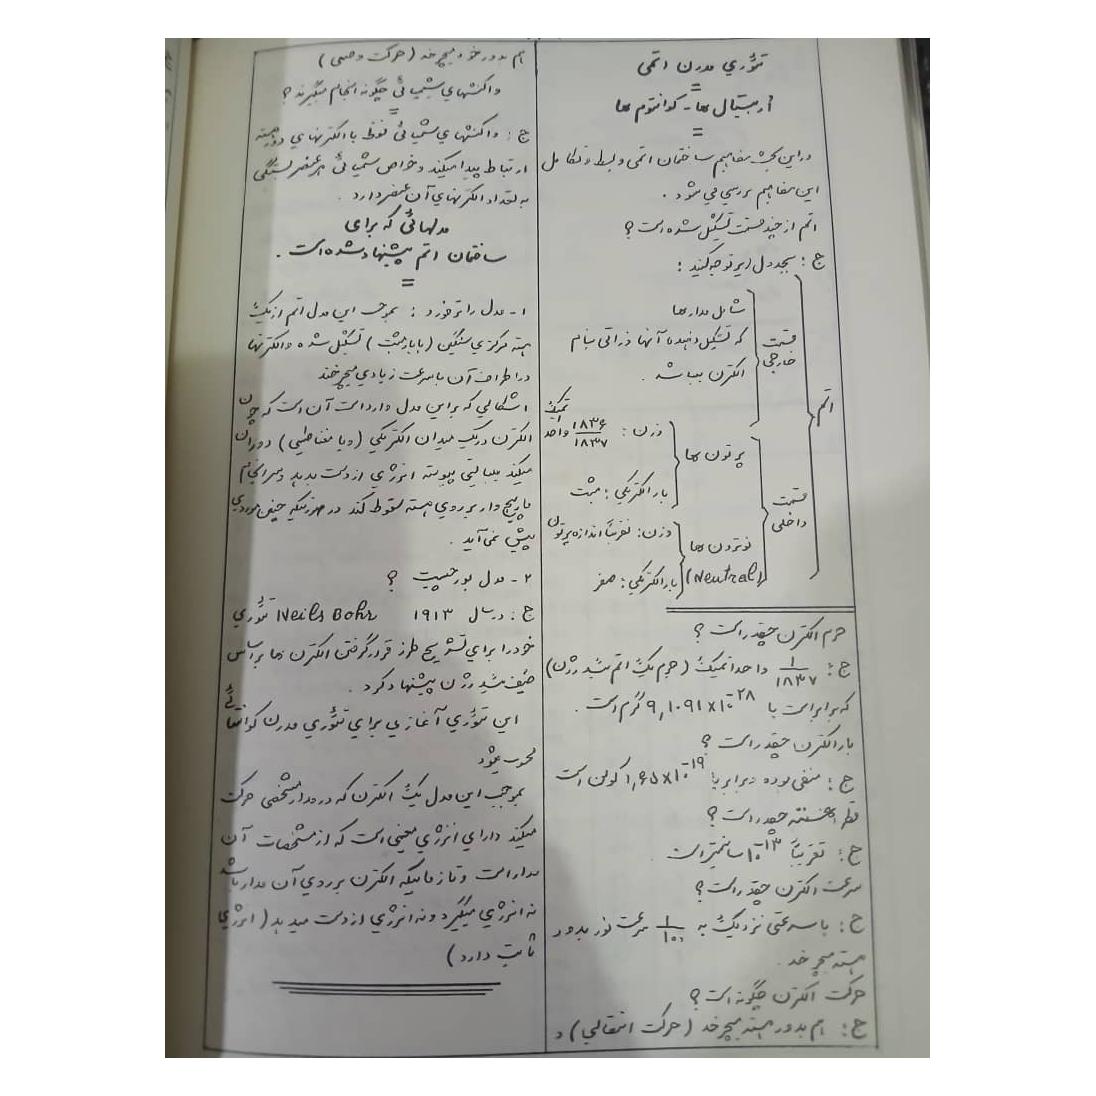 تئوري مدرن اتمی
اربیتال ها - کوانتوم ها
دراین بحث مفاهیم ساختمان اتمی و بسط و تکامل
این مفاهیم بررسی می شود .
اتم از چند قسمت تشکیل شده است ؟
ج : بجدول زیر توجه کنید :
اتم
قسمت خارجی
شامل مدارها
که تشکیل دهنده آنها ذراتی بنام
الکترن میباشد .
قسمت داخلی
پرتون ها
وزن : ۱۸۳۶/۱۸۳۷ واحد اتمیک
بار الکتریکي : مثبت
نوترون ها (Neutral)
وزن : تقریباً اندازه پرتون
بار الکتریکي : صفر
جرم الکترن چقدر است ؟
ج : ۱/۱۸۳۷ واحد اتمیک ( جرم یک اتم ئیدرژن )
که برابر است با ۹,۱۰۹۱ x ۱۰⁻²⁸ گرم است .
بار الکترن چقدر است ؟
ج : منفی بوده و برابر با ۱,۶۰ x ۱۰⁻¹⁹ کولن است
قطر هسته چقدر است ؟
ج : تقریباً ۱۰⁻¹³ سانتیمتر است .
سرعت الکترن چقدر است ؟
ج : با سرعتی نزدیک به ۱/۱۰۰ سرعت نور بدور
هسته میچرخد .
حرکت الکترن چگونه است ؟
ج : هم بدور هسته میچرخد ( حرکت انتقالي ) و
هم بدور خود میچرخد ( حرکت وضعی )
واکنشهاي شیمیائی چگونه انجام میگیرند ؟
ج : واکنشهاي شیمیائی فقط با الکترنهاي دور هسته
ارتباط پیدا میکند و خواص شیمیائی هر عنصر بستگی
به تعداد الکترنهاي آن عنصر دارد .
مدلهائی که براي
ساختمان اتم پیشنهاد شده است .
۱ - مدل راترفورد : بموجب این مدل اتم از یک
هسته مرکزي سنگین ( با بار مثبت ) تشکیل شده و الکترنها
در اطراف آن با سرعت زیادي میچرخند
اشکالي که بر این مدل وارد است آن است که چون
الکترن در یک میدان الکتریکي ( و یا مغناطیسي ) دوران
میکند میبایستی پیوسته انرژي از دست بدهد و سرانجام
مارپیچ وار بر روي هسته سقوط کند در صورتیکه چنین موردي
پیش نمی آید .
۲ - مدل بور چیست ؟
ج : در سال ۱۹۱۳ Neils Bohr تئوري
خود را براي تشریح طرز قرار گرفتن الکترن ها بر اساس
طیف ئیدرژن پیشنهاد کرد .
این تئوري آغازي براي تئوري مدرن کوانتائی
محسوب میشود
بموجب این مدل یک الکترن که در مدار مشخصی حرکت
میکند داراي انرژي معینی است که از مشخصات آن
مدار است و تا زمانیکه الکترن بر روي آن مدار باشد
نه انرژي میگیرد و نه انرژي از دست میدهد ( انرژي
ثابت دارد )